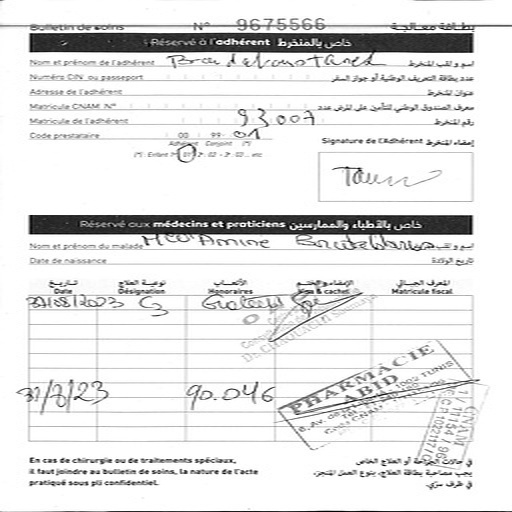 Bulletin de soins N° 9675566 بطاقة معالجة
Réservé à l'adhérent خاص بالمنخرط
Nom et prénom de l'adhérent اسم و لقب المنخرط
Numéro CIN ou passeport عدد بطاقة التعريف الوطنية أو جواز السفر
Adresse de l'adhérent عنوان المنخرط
Matricule CNAM N° معرف الصندوق الوطني للتأمين على المرض عدد
Matricule de l'adhérent 93007 رقم المنخرط
Code prestataire 00 99 01
Adhérent Conjoint (*)
(*) : Enfant 1er : 01 - 2e : 02 - 3e : 03 ... etc
Signature de l'Adhérent إمضاء المنخرط
Réservé aux médecins et praticiens خاص بالأطباء والممارسين
Nom et prénom du malade Amine اسم و لقب
Date de naissance تاريخ الولادة
تاريخ نوعية العلاج الأتعاب الإمضاء والختم المعرف الجبائي
Date Désignation Honoraires Visa & cachet Matricule fiscal
31/08/2023 C3 Gratuit
31/8/23 90.046
PHARMACIE
ABID
TUNIS
CNAM
En cas de chirurgie ou de traitements spéciaux,
il faut joindre au bulletin de soins, la nature de l'acte
pratiqué sous pli confidentiel.
في حالات الجراحة أو العلاج الخاص
يجب مصاحبة بطاقة العلاج، بنوع العمل المنجز،
في ظرف سرّي.